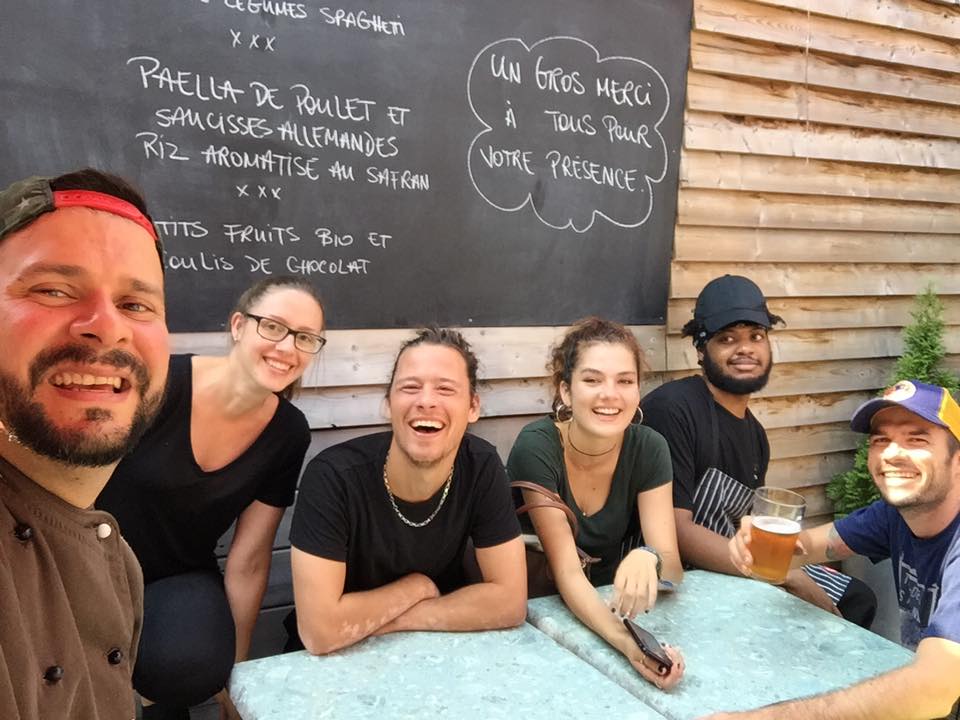 LEGUMES SPAGHETI
x x x
PAELLA DE POULET ET
SAUCISSES ALLEMANDES
RIZ AROMATISE AU SAFRAN
x x x
TITS FRUITS BIO ET
COULIS DE CHOCOLAT
UN GROS MERCI
À TOUS POUR
VOTRE PRÉSENCE.